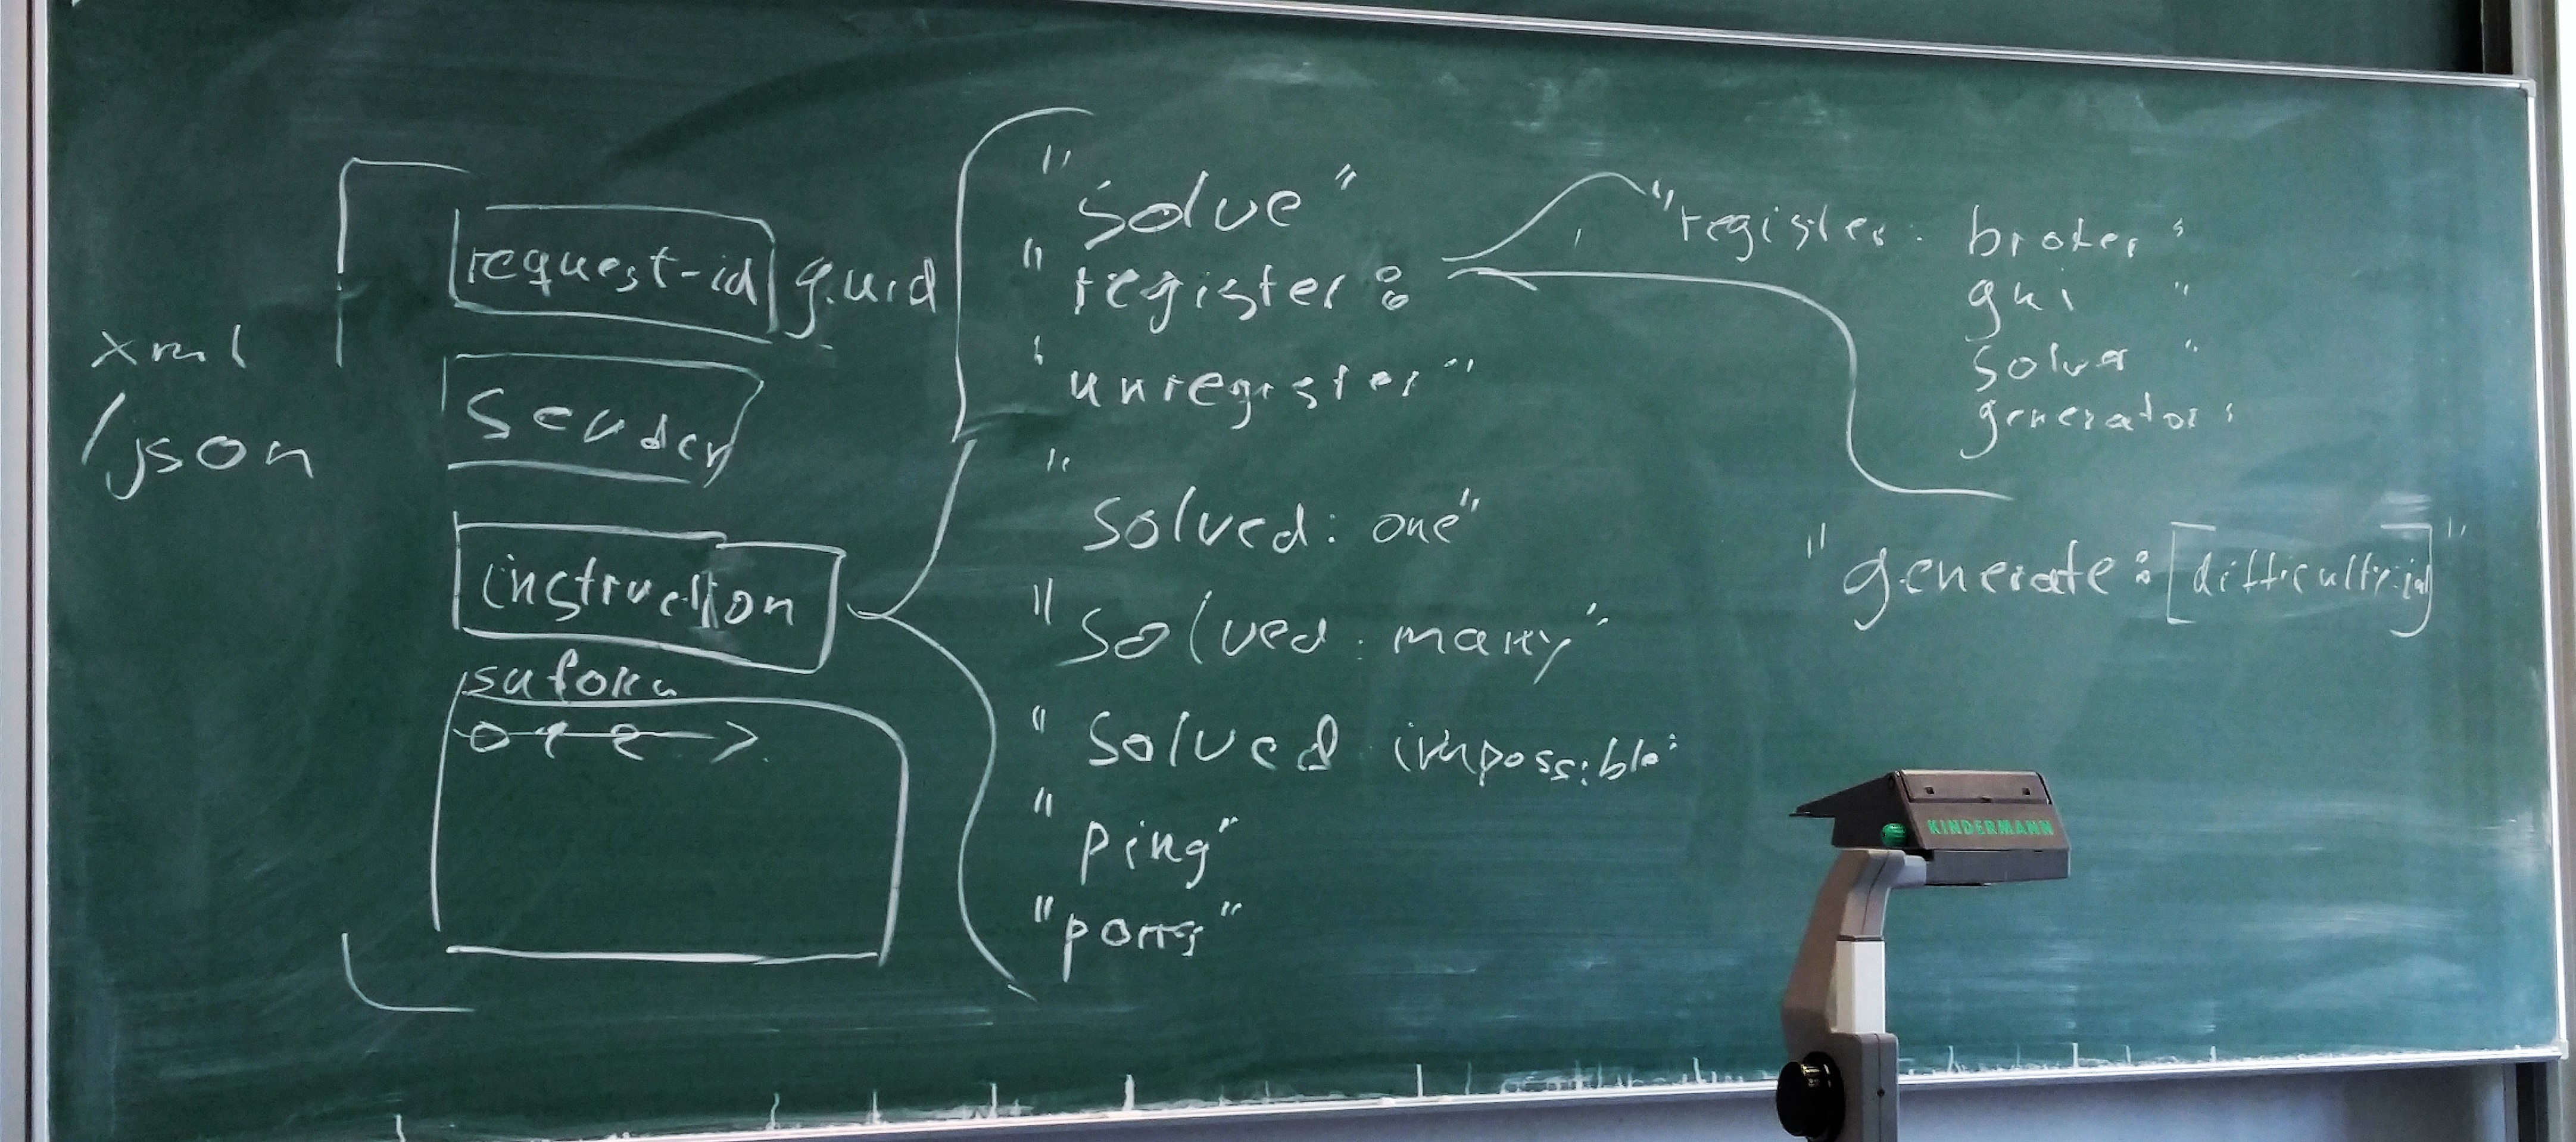 xml
/json
request-id guid
Sender
instruction
sudoku
"solve"
"register:
"unregister"
"solved: one"
"solved: many"
"solved impossible"
"ping"
"pong"
"register: broker"
gui "
solver "
generator"
"generate: [difficulty-id]"
KINDERMANN